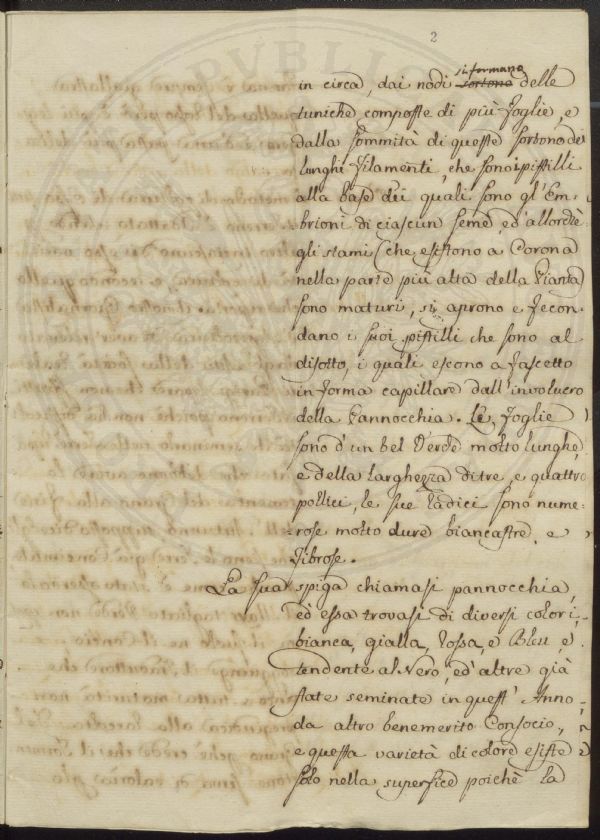 2
in circa, dai nodi si formano sortono delle
tuniche composte di più foglie, e
dalla sommità di queste sortono dei
lunghi filamenti, che sono i pistilli
alla base dei quali sono gl'Em-
brioni di ciascun seme, ed' allorchè
gli stami (che esistono a Corona
nella parte più alta della Pianta)
sono maturi, si aprono e fecon-
dano i suoi pistilli che sono al
disotto, i quali escono a fascetto
in forma capillare dall'involucro
della Pannocchia. Le foglie
sono d'un bel Verde molto lunghe,
e della larghezza di tre, e quattro
pollici, le sue radici sono nume-
rose molto dure biancastre, e
fibrose.
La sua spiga chiamasi pannocchia,
ed essa trovasi di diversi colori,
bianca, gialla, rossa, e Bleu, e
tendente al Nero, ed' altre già
state seminate in quest' Anno
da altro benemerito Consocio,
e questa varietà di colore esiste
solo nella superfice poichè la